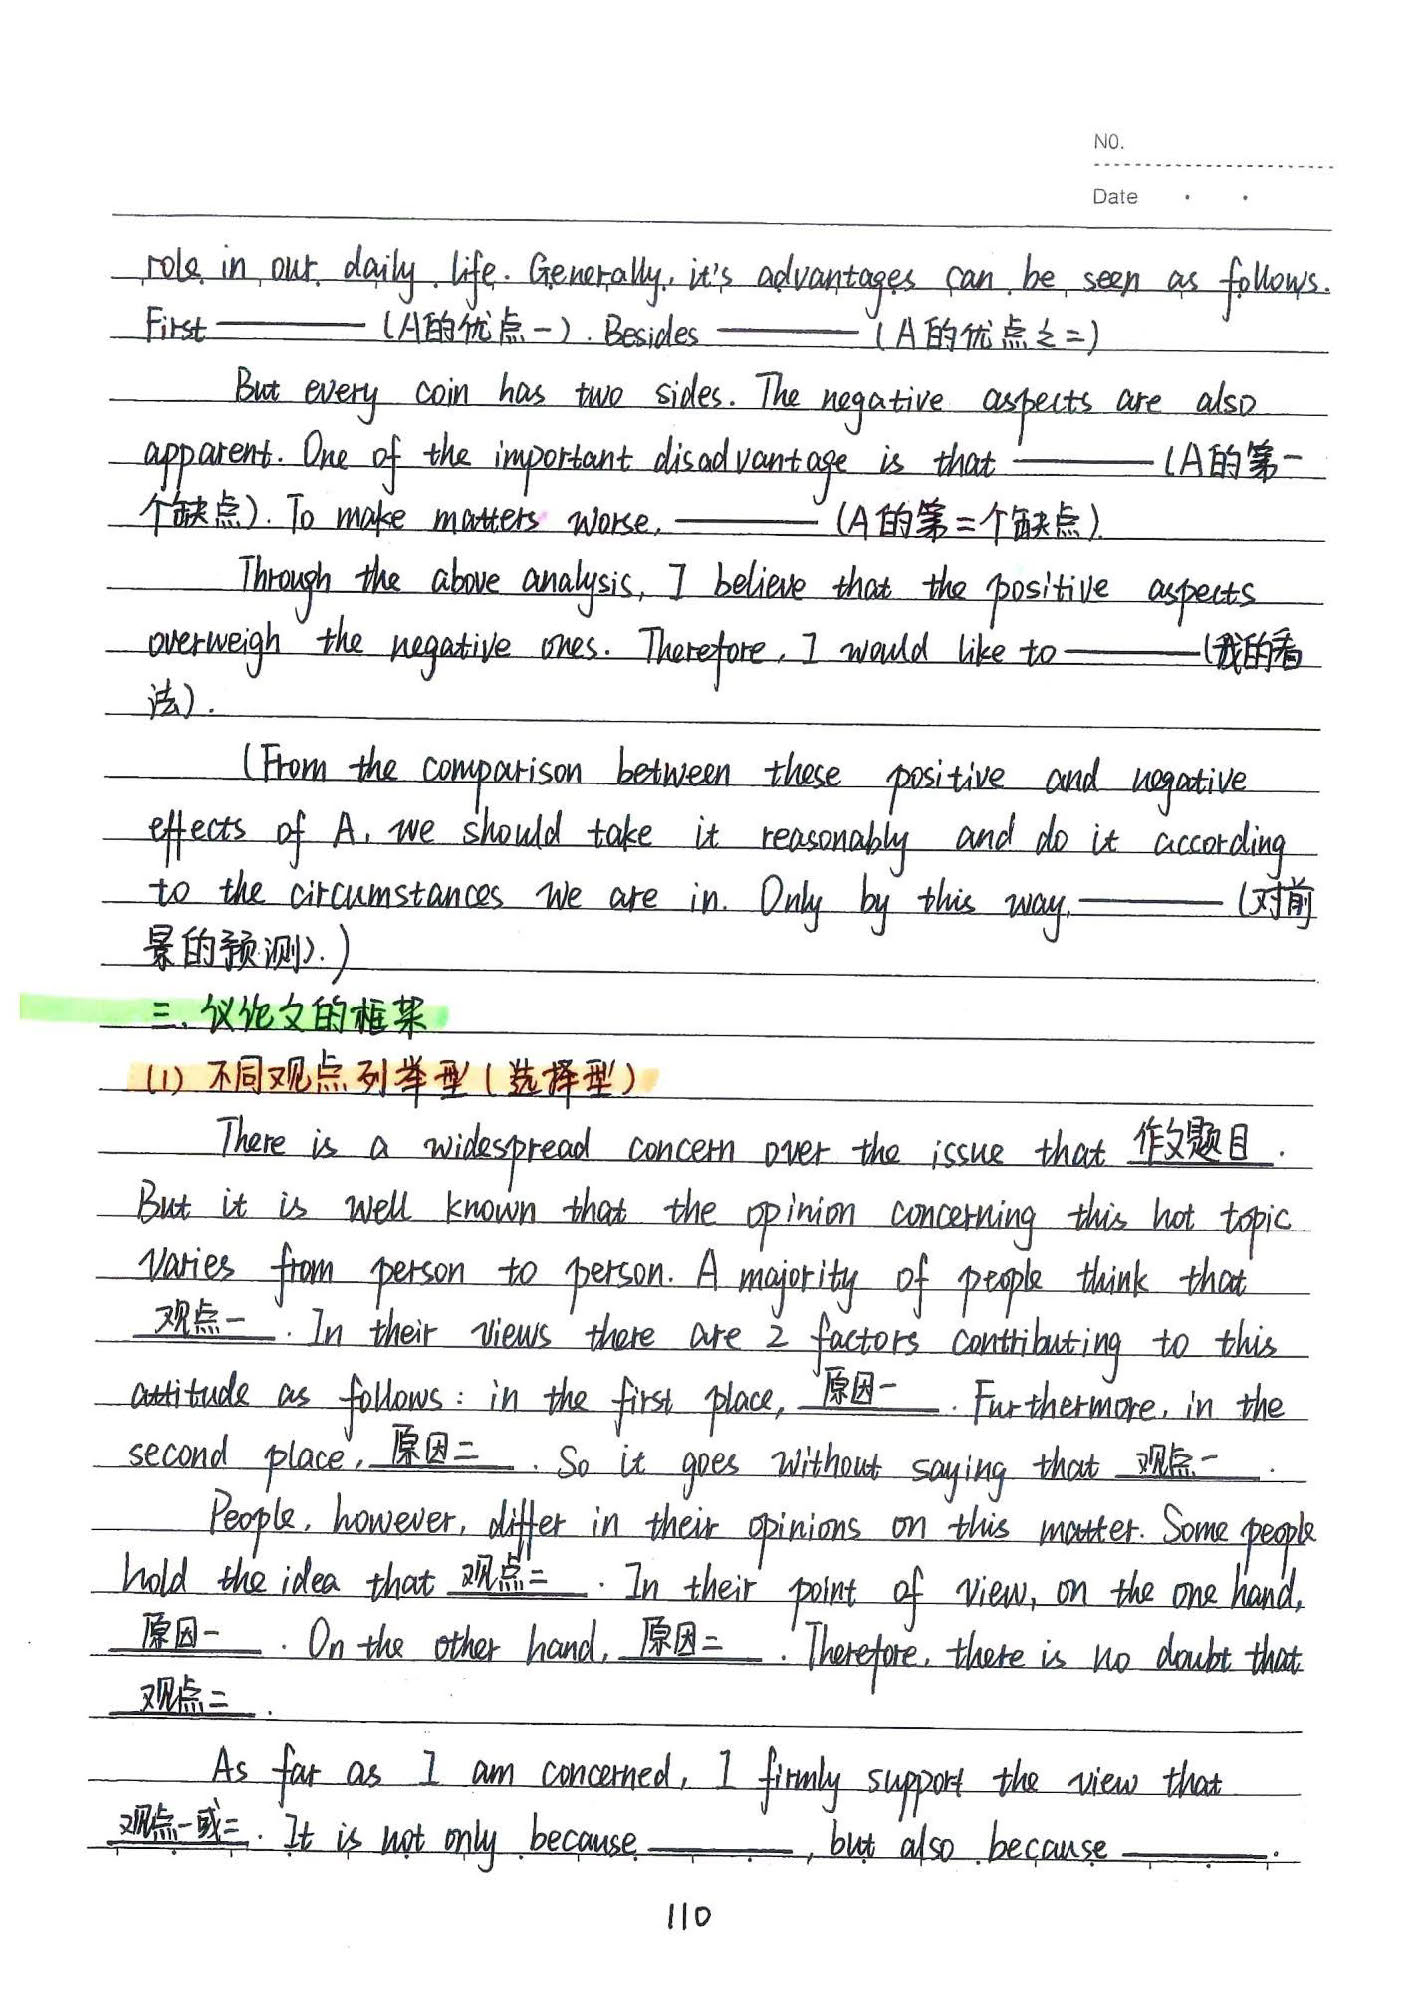 NO.
Date
role in our daily life. Generally, it's advantages can be seen as follows.
First ———— (A的优点一). Besides ———— (A的优点之二)
But every coin has two sides. The negative aspects are also
apparent. One of the important disadvantage is that ———— (A的第一
个缺点). To make matters worse, ———— (A的第二个缺点).
Through the above analysis, I believe that the positive aspects
overweigh the negative ones. Therefore, I would like to ———— (我的看
法).
(From the comparison between these positive and negative
effects of A, we should take it reasonably and do it according
to the circumstances we are in. Only by this way, ———— (对前
景的预测).)
三、议论文的框架
(1) 不同观点列举型(选择型)
There is a widespread concern over the issue that 作文题目.
But it is well known that the opinion concerning this hot topic
varies from person to person. A majority of people think that
观点一. In their views there are 2 factors contributing to this
attitude as follows: in the first place, 原因一. Furthermore, in the
second place, 原因二. So it goes without saying that 观点一.
People, however, differ in their opinions on this matter. Some people
hold the idea that 观点二. In their point of view, on the one hand,
原因一. On the other hand, 原因二. Therefore, there is no doubt that
观点二.
As far as I am concerned, I firmly support the view that
观点一或二. It is not only because ————, but also because ————.
110